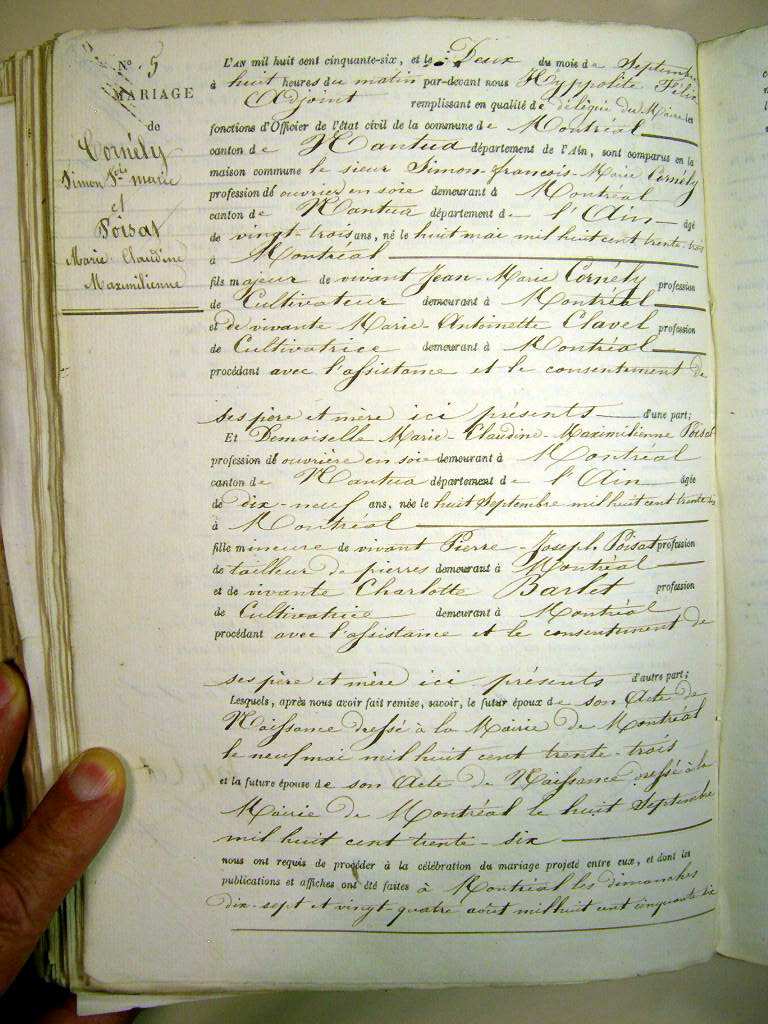 N.o 5
MARIAGE
de
Cornély
Simon f.ois marie
et
Poisat
Marie Claudine
Maximilienne
L'AN mil huit cent cinquante-six, et le Deux du mois de Septembre
à huit heures du matin par-devant nous Hyppolite Félix
Adjoint remplissant en qualité de délégué du Maire les
fonctions d'Officier de l'état civil de la commune de Montréal
canton de Nantua département de l'Ain, sont comparus en la
maison commune le sieur Simon-françois-Marie Cornély
profession de ouvrier en soie demeurant à Montréal
canton de Nantua département de l'Ain âgé
de vingt-trois ans, né le huit mai mil huit cent trente-trois
à Montréal
fils majeur de vivant Jean-Marie Cornély profession
de Cultivateur demeurant à Montréal
et de vivante Marie-Antoinette Clavel profession
de Cultivatrice demeurant à Montréal
procédant avec l'assistance et le consentement de
ses père et mère ici présents d'une part;
Et Demoiselle Marie-Claudine-Maximilienne Poisat
profession de ouvrière en soie demeurant à Montréal
canton de Nantua département de l'Ain âgée
de dix-neuf ans, née le huit Septembre mil huit cent trente six
à Montréal
fille mineure de vivant Pierre-Joseph Poisat profession
de tailleur de pierres demeurant à Montréal
et de vivante Charlotte Barlet profession
de Cultivatrice demeurant à Montréal
procédant avec l'assistance et le consentement de
ses père et mère ici présents d'autre part;
Lesquels, après nous avoir fait remise, savoir, le futur époux de son Acte de
Naissance dressé à la Mairie de Montréal
le neuf mai mil huit cent trente-trois
et la future épouse de son Acte de Naissance dressé à la
Mairie de Montréal le huit Septembre
mil huit cent trente-six
nous ont requis de procéder à la célébration du mariage projeté entre eux, et dont les
publications et affiches ont été faites à Montréal les dimanches
dix-sept et vingt-quatre août mil huit cent cinquante six